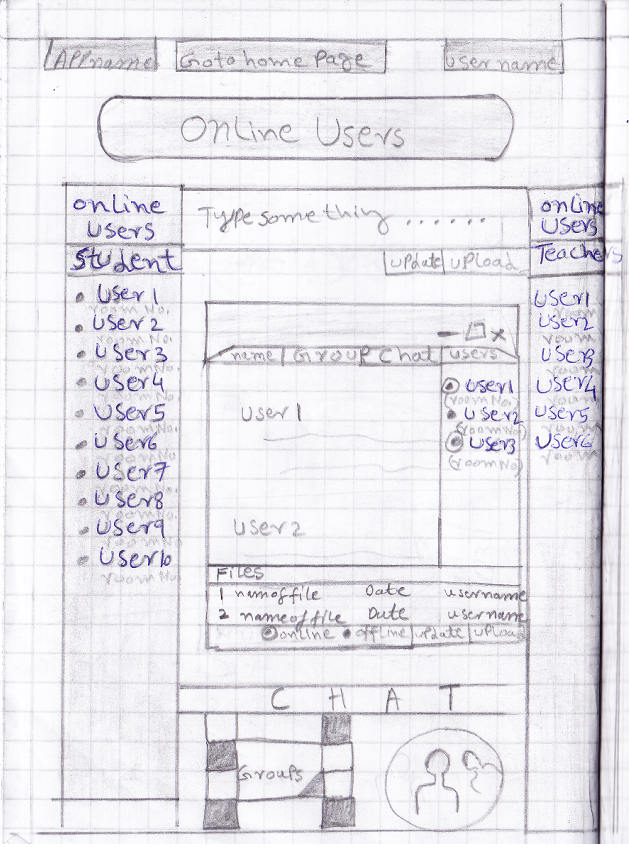 APPname Goto home Page User name
Online Users
online
users
Student
User 1
room No.
User 2
room No.
User 3
room No.
User 4
room No.
User 5
room No.
User 6
room No.
User 7
room No.
User 8
room No.
User 9
room No.
User 10
room No.
Type something ......
update upload
name Group Chat users
User 1
User 2
User 1
(room No.)
User 2
(room No)
User 3
(room No)
Files
1 nameoffile Date username
2 nameoffile Date username
online offline update upload
CHAT
Groups
online
users
Teachers
User 1
room
User 2
room
User 3
room
User 4
room
User 5
room
User 6
room